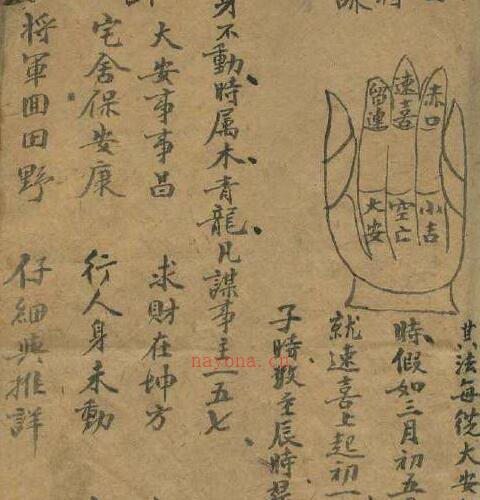 赤口
速喜
留連
小吉
空亡
大安
其法每從大安
時假如三月初五
就速喜上起初一
子時数至辰時
身不動時属木青龍凡謀事主一五七
大安事事昌 求財在坤方
宅舍保安康 行人身未動
將軍囬田野 仔細與推詳
nayona.cn